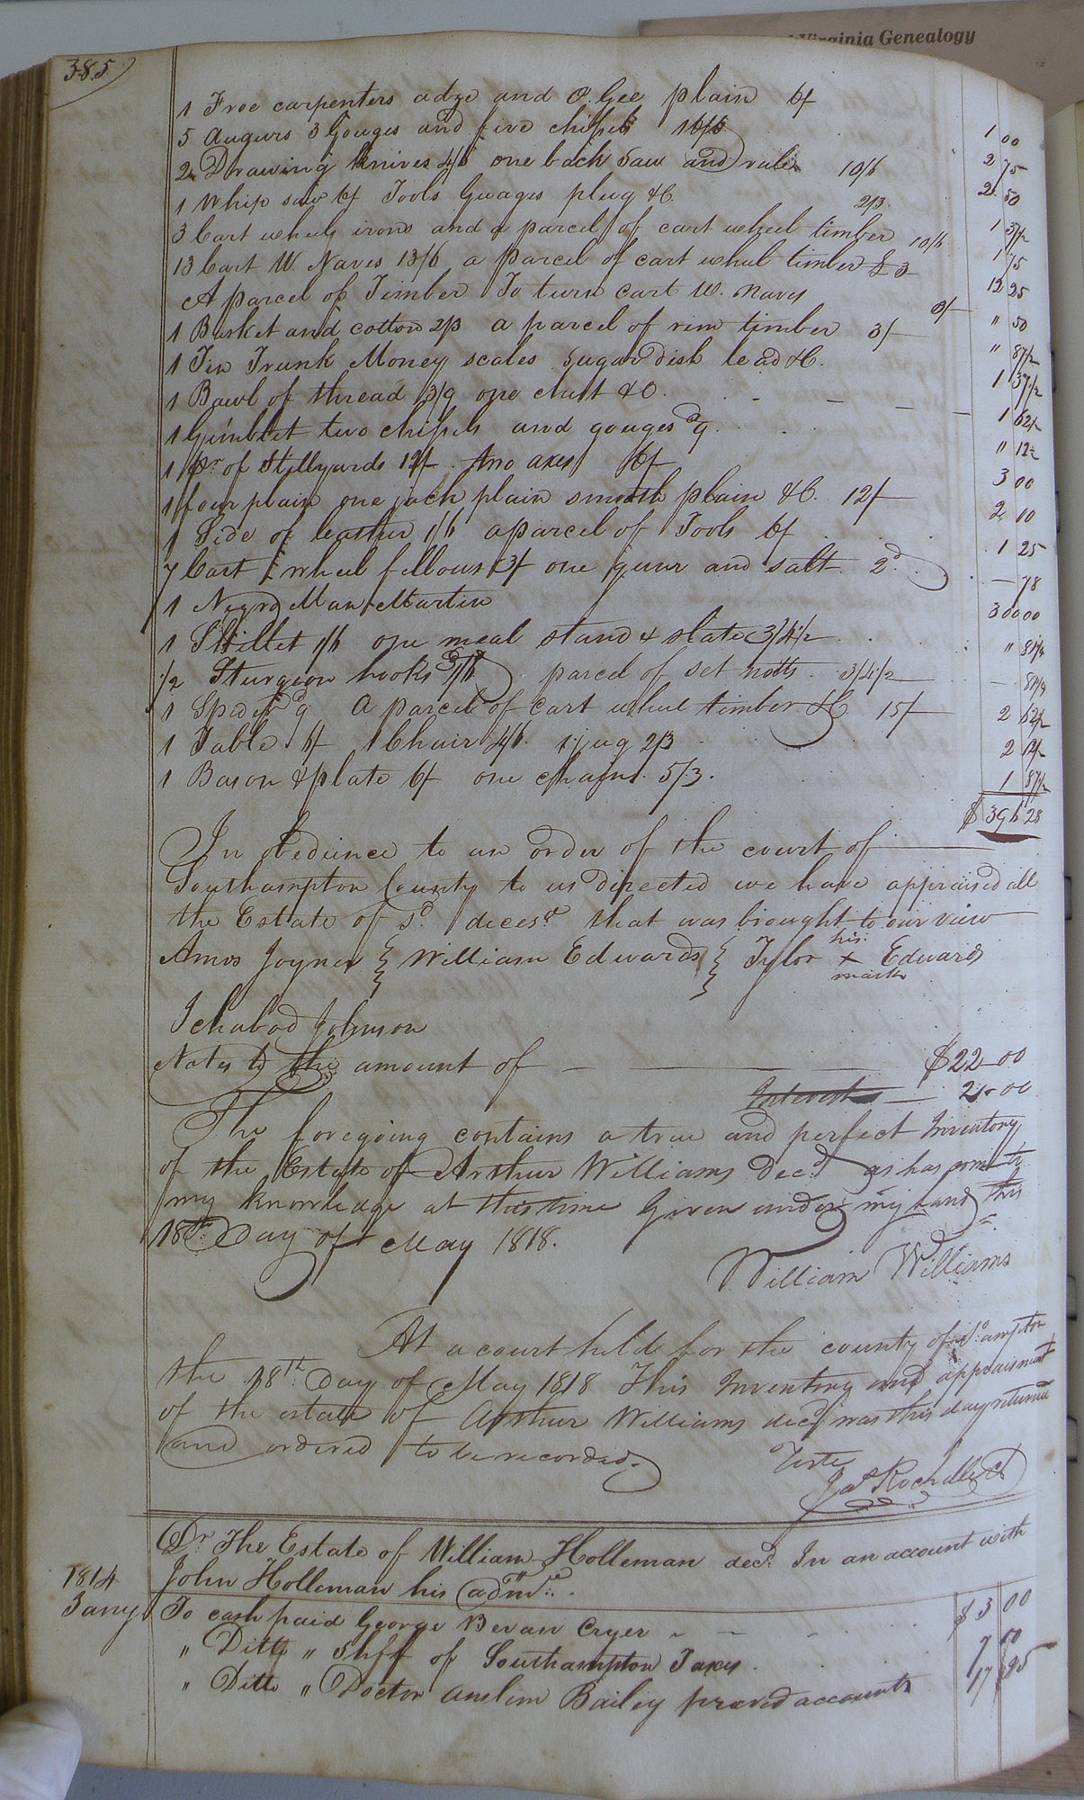 Virginia Genealogy
385
1 Froe carpenters adze and O. Gee plain 6/ 1 00
5 Augurs 3 Gouges and five chissels 16/6 2 75
2 Drawing knives 4/6 one back saw and rule 10/6 2 50
1 Whip saw 6/ Tools Guages plug &C 2/3 1 37/2
3 Cart wheely irons and a parcel of cart wheel timber 10/6 1 75
13 Cart W. Naves 13/6 a parcel of cart wheel timber £ 3 12 25
A parcel of Timber To turn cart W. naves 3/ " 50
1 Basket and cotton 2/3 a parcel of rim timber 3/ " 87/2
1 Tin Trunk Money scales Sugar dish lead &C. 1 37/2
1 Bawl of thread 3/9 one chest &C. 1 62/2
1 Gimblet two chisels and gouges 9d. " 12/2
1 Pr of Stillyards 12/ Two axes 6/ 3 00
1 four plain one jack plain smooth plain &C. 12/ 2 00
1 Side of leather 1/6 a parcel of Tools 6/ 1 25
7 Cart wheel fellows 3/ one gun and salt 2d. 78
1 Negro Man Martin 300 00
1 Skillet 1/6 one meal stand & slate 3/4½ " 81/4
½ Sturgeon hooks 1/6 parcel of set notts 3/4½ 81/4
1 Spade 9d A parcel of cart wheel timber &C 15/ 2 62/2
1 Table 6/ 1 Chair 4/6 1 jug 2/3 2 12/
1 Bason & plate 6/ one chain 5/3. 1 87/2
$ 396 28
In obedience to an order of the court of
Southampton County to us directed we have appraised all
the Estate of sd. decesd. that was brought to our view
Amos Joyner William Edwards Tylor his X mark Edwards
Ichabod Johnson
Notes to the amount of $22 00
Interest 2 00
The foregoing contains a true and perfect Inventory
of the Estate of Arthur Williams decd. as has come to
my knowledge at this time Given under my hand this
18th Day of May 1818.
William Williams
At a court held for the county of So.ampton
the 18th Day of May 1818 This Inventory and appraisment
of the estate of Arthur Williams decd. was this day returned
and ordered to be recorded.
Teste
Jas Rochelle Cl
Dr. The Estate of William Holleman decd. In an account with
John Holleman his admr.
1814
Jany. To cash paid George Bevan Cryer $ 3 00
" Ditto " Shff of Southampton Taxes
" Ditto " Doctor Anslem Bailey proved accounts 17 95